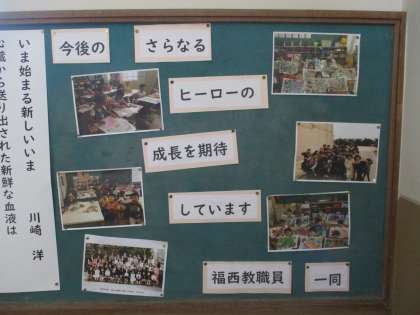 いま始まる新しいいま
川崎 洋
心臓から送り出された新鮮な血液は
今後の
さらなる
ヒーローの
成長を期待
しています
福西教職員
一同